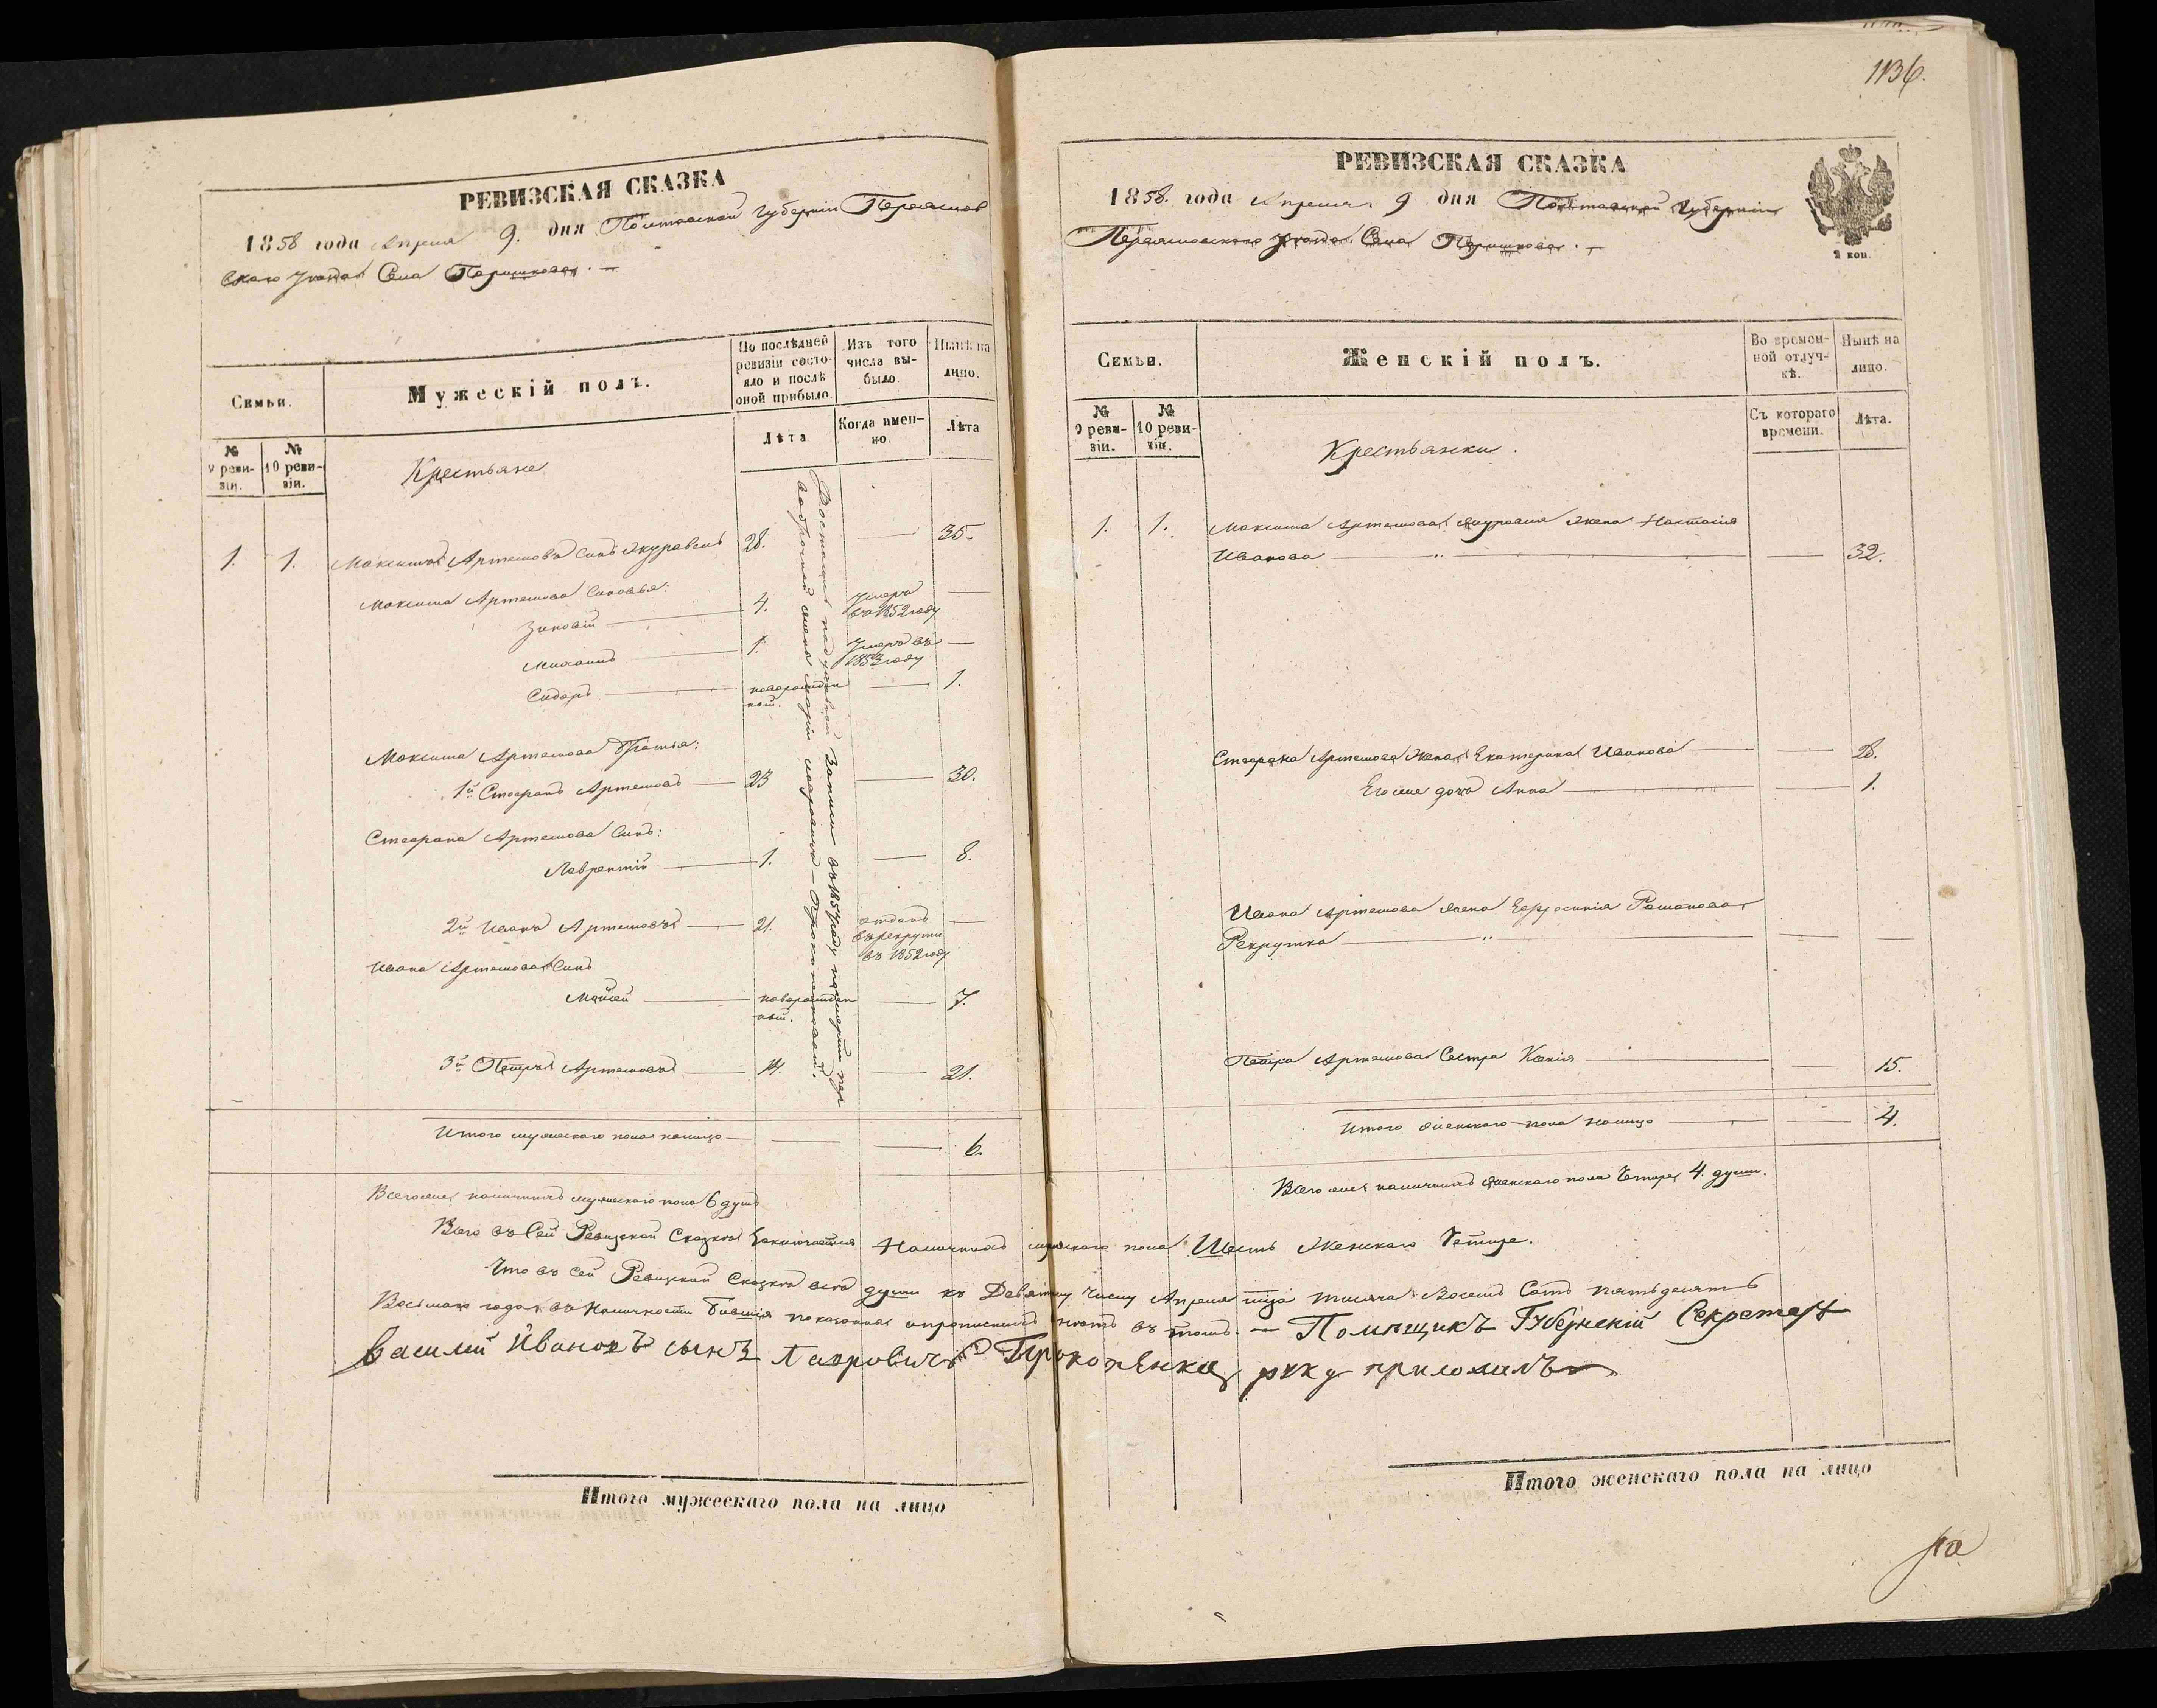 РЕВИЗСКАЯ СКАЗКА
1858 года Апреля 9. дня Полтавской губерніи Переяслов
скаго уезда Села Паришкова. —
Семьи.
Мужескій полъ.
По послѣдней ревизіи состояло и послѣ оной прибыло.
Изъ того числа выбыло
Нынѣ на лицо.
№ 9 ревизіи.
№ 10 ревизіи.
Крестьяне
Лѣта
Когда именно.
Лѣта
1. 1. Максимъ Артемовъ Синъ Журавель 28. — 35.
Максима Артемова Синовья:
Зиновій — 4. Умеръ въ 1852 году —
Михаилъ — 1. Умеръ въ 1853 году —
Сидоръ — новорожден ный. — 1.
Максима Артемова Братья:
1й Стефанъ Артемовъ — 23 — 30.
Стефана Артемова Синъ:
Лаврентій — 1. — 8.
2й Иванъ Артемовъ — 21. отданъ въ рекруты въ 1852 году —
Ивана Артемова Синъ
Мойсей — новорожден ный. — 7.
3й Петръ Артемовъ — 14. — 21.
въ 1854 году
Итого мужескаго пола налицо — — — 6.
Всего наличныхъ мужескаго пола 6 душъ
Итого мужескаго пола на лицо
1136.
РЕВИЗСКАЯ СКАЗКА
1858. года Апреля. 9 дня Полтавской Губерніи
Переясловскаго уезда Села Паришкова. —
2 коп.
Семьи.
Женскій полъ.
Во временной отлучкѣ.
Нынѣ на лицо.
№ 9 ревизіи.
№ 10 ревизіи.
Крестьянки.
Съ котораго времени.
Лѣта.
1. 1. Максима Артемова Журавля жена Настасія
Иванова — " — — 32.
Стефана Артемова Жена Екатерина Иванова — — 28.
Его же дочь Анна — — 1.
Ивана Артемова жена Евфросинія Романова
Рекрутка — " — — —
Петра Артемова Сестра Ксенія — — 15.
Итого женскаго пола налицо — — 4.
Всего наличныхъ женскаго пола Четыре 4. души.
Всего въ Сей Ревизской Сказкѣ Заключается Наличныхъ мужскаго пола Шесть Женскаго Четыре.
Что въ сей Ревизской Сказкѣ все души къ Девятому Числу Апреля тысяча Восемь Сотъ пятьдесятъ
Восьмаго года въ Наличности бывшія показаны и прописныхъ нетъ въ томъ. — Помѣщикъ Губернскій Секретарь
Василій Ивановъ сынъ Лавровичъ Прокопенко руку приложилъ
Итого женскаго пола на лицо